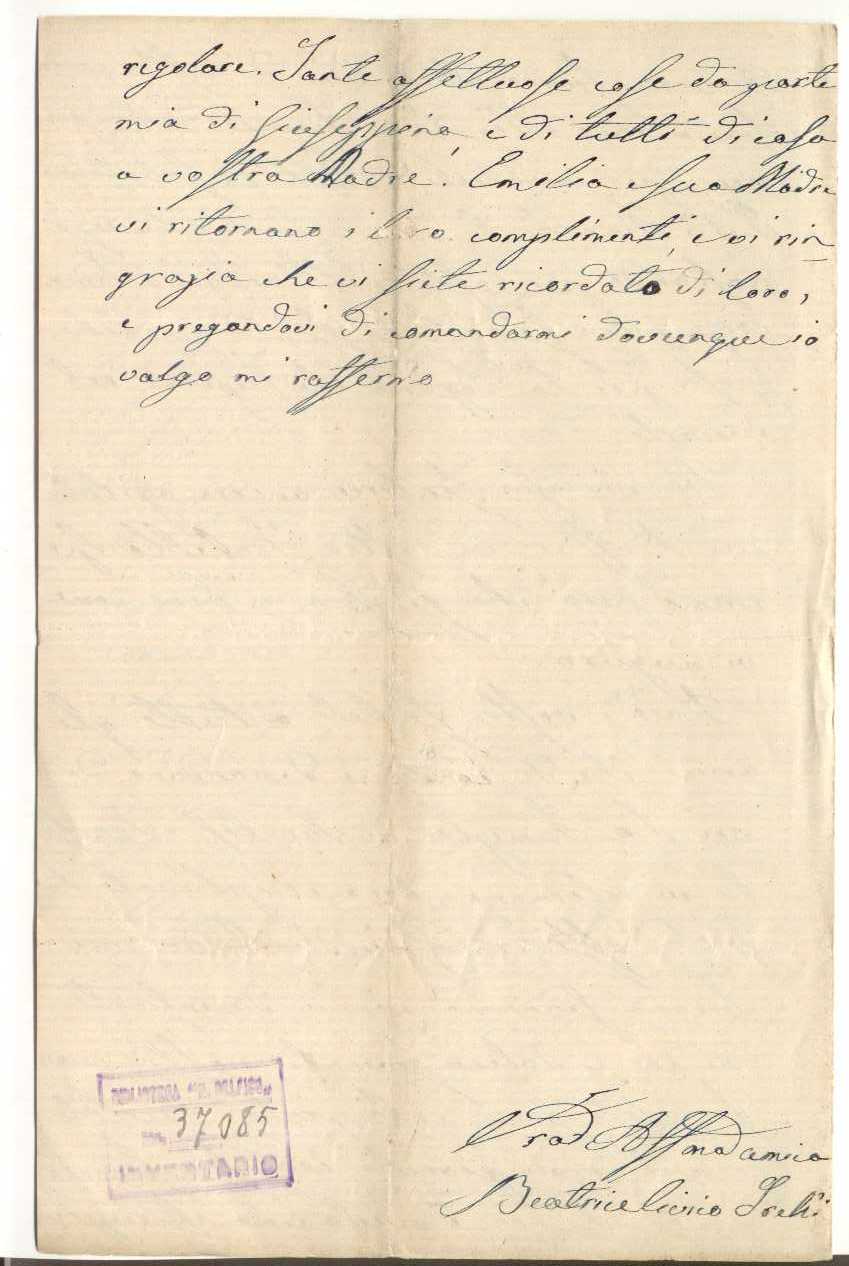 rigolare. Tante affettuose cose da parte
mia di Giuseppina, e di tutti di casa
a vostra Madre. Emilia e sua Madre
vi ritornano i loro complimenti, e vi rin
grazia che vi siete ricordato di loro,
e pregandovi di comandarmi dovunque io
valgo mi raffermo
37085
INVENTARIO
Affma amica
Beatrice